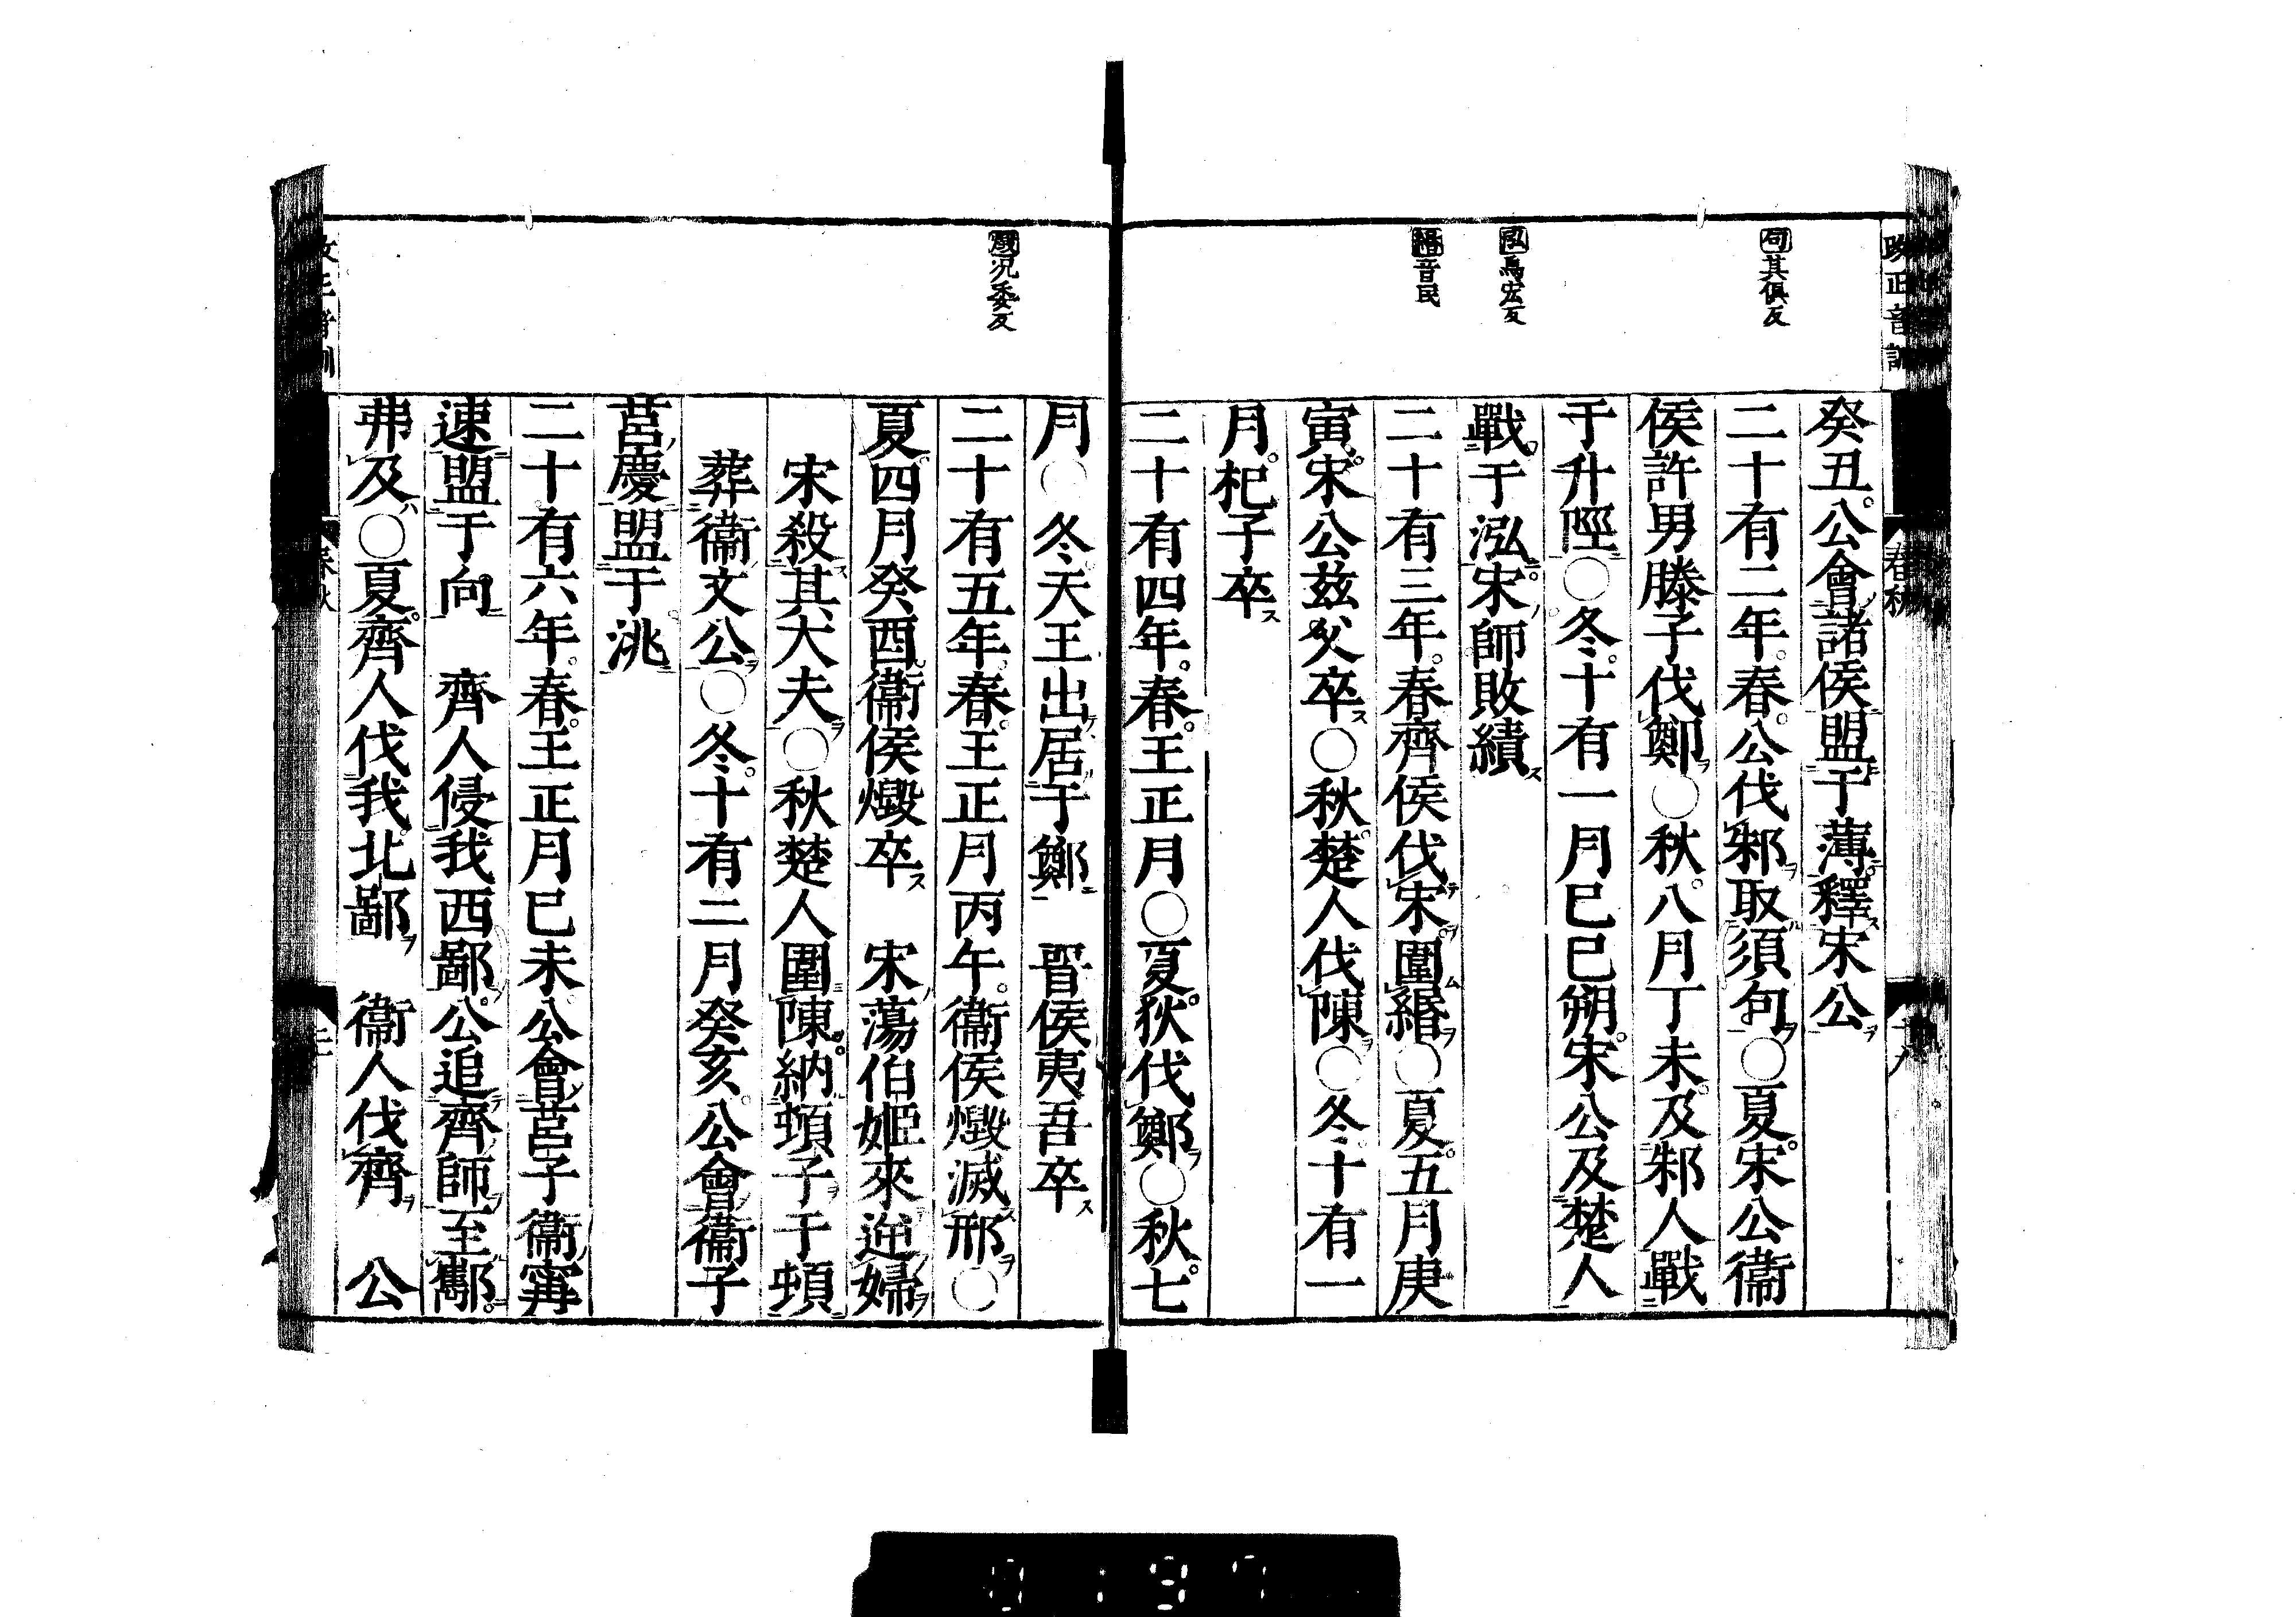 改正音訓
春秋
句其俱反
泓烏宏反
緡音民
癸丑公會諸侯盟于薄釋宋公
二十有二年春公伐邾取須句○夏宋公衞
侯許男滕子伐鄭○秋八月丁未及邾人戰
于升陘○冬十有一月巳巳朔宋公及楚人
戰于泓宋師敗績
二十有三年春齊侯伐宋圍緡○夏五月庚
寅宋公茲父卒○秋楚人伐陳○冬十有一
月杞子卒
二十有四年春王正月○夏狄伐鄭○秋七
燬況委反
月○冬天王出居于鄭 晉侯夷吾卒
二十有五年春王正月丙午衞侯燬滅邢○
夏四月癸酉衞侯燬卒 宋蕩伯姬來逆婦
宋殺其大夫○秋楚人圍陳納頓子于頓
葬衞文公○冬十有二月癸亥公會衞子
莒慶盟于洮
二十有六年春王正月巳未公會莒子衞甯
速盟于向 齊人侵我西鄙公追齊師至酅
弗及○夏齊人伐我北鄙 衞人伐齊 公